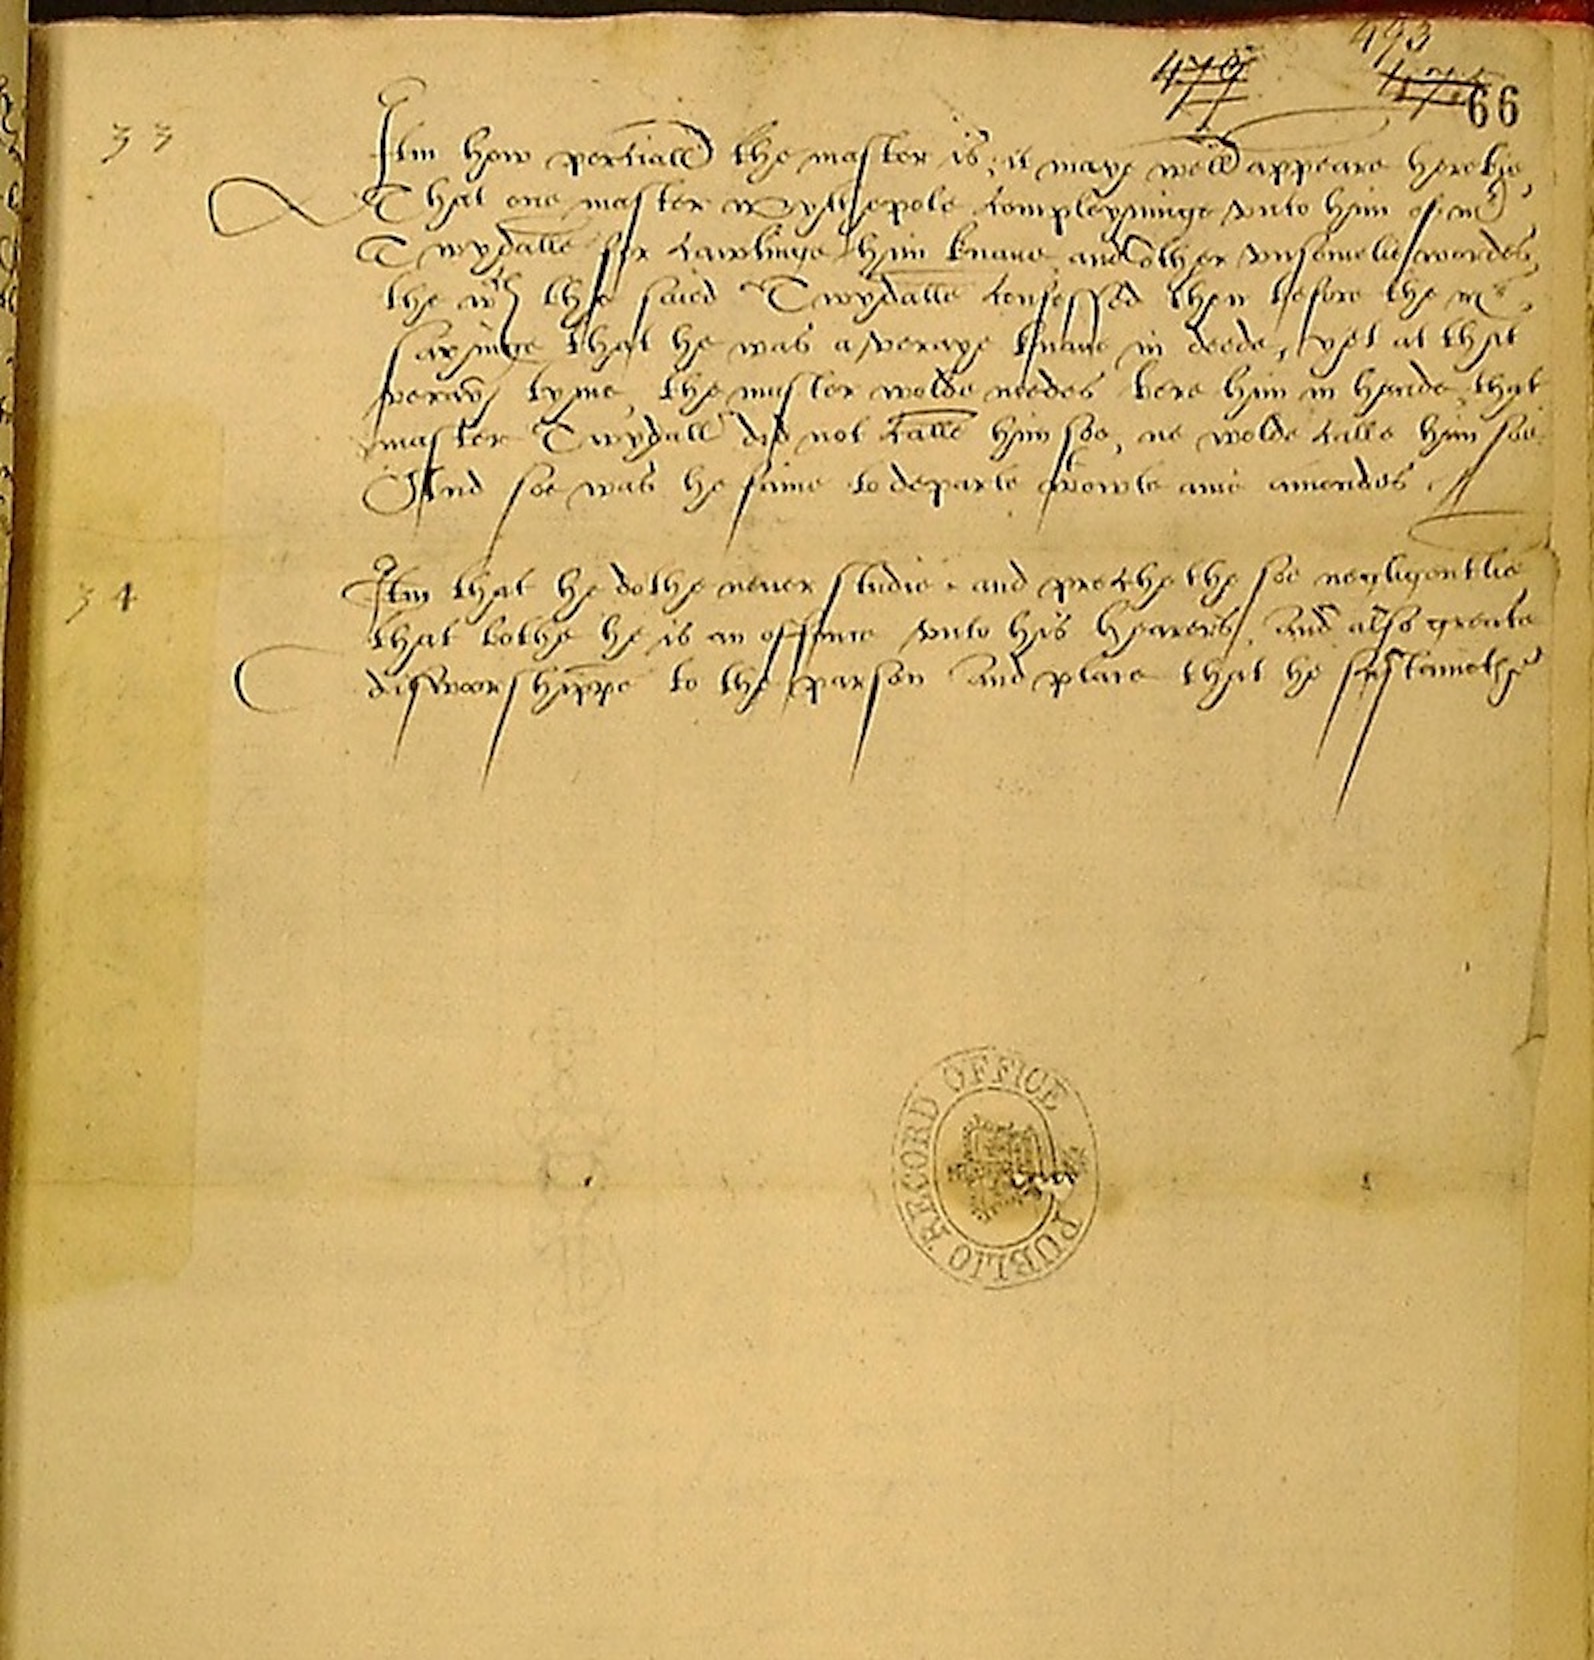 479
493
475
66
33
Itm how perciall the master is, it maye well appeare herebie,
That one master Wythepole compleyninge vnto him of mr
Twydalle for cawlinge him knave and other vnsomelie wordes,
the wch the saied Twydalle confessed then before the mr,
sayinge that he was a veraye knave in deede, yet at that
veray tyme, the master wolde needes bere him in hande, that
master Twydall did not calle him soe, ne wolde calle him soe.
And soe was he faine to departe wowte anie amendes.
34
Itm that he dothe never studie, and prechethe soe negligentlie
that bothe he is an offence vnto his hearers, and also greate
disworshippe to the parson and place that he susteineth
PUBLIC RECORD OFFICE